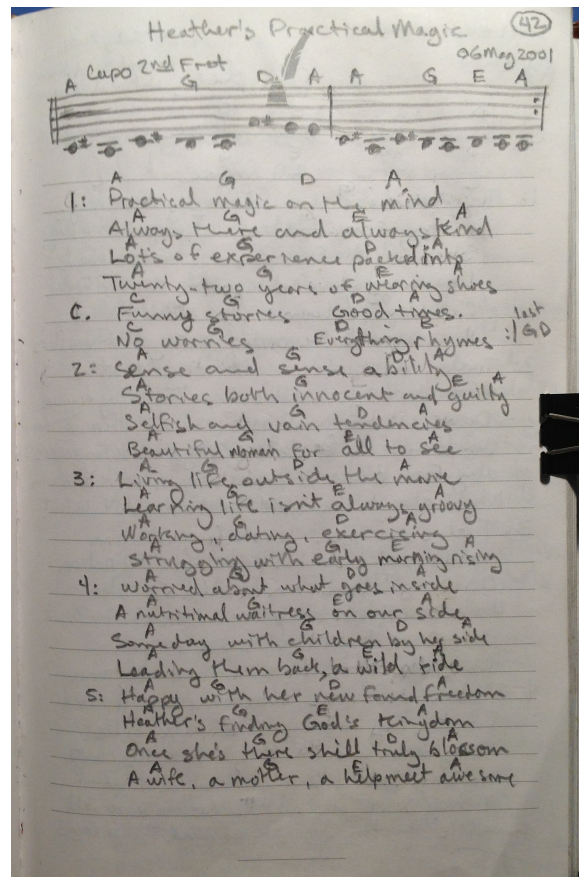 Heather's Practical Magic
42
06 May 2001
Capo 2nd Fret
A G D A A G E A
A G D A
1: Practical magic on the mind
A G E A
Always there and always kind
A G D A
Lots of experience packed into
A G E A
Twenty-two years of wearing shoes
C G D A
C. Funny stories Good times.
C G D E
No worries Everything rhymes :| last GD
A G D A
2: Sense and sense ability
A G E A
Stories both innocent and guilty
A G D A
Selfish and vain tendencies
A G E A
Beautiful woman for all to see
A G D A
3: Living life outside the movie
A G E A
Learning life isn't always groovy
A G D A
Working, dating, exercising
A G E A
Struggling with early morning rising
A G D A
4: Worried about what goes inside
A G E A
A nutritional waitress on our side
A G D A
Someday with children by her side
A G E A
Leading them back, a wild ride
A G D A
5: Happy with her new found freedom
A G E A
Heather's finding God's Kingdom
A G D A
Once she's there she'll truly blossom
A G E A
A wife, a mother, a helpmeet awesome